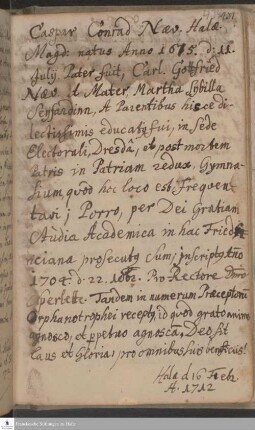 401.
Caspar Conrad Næv. Halâ-
Magd: natus Anno 1685. d: 11.
July. Pater fuit, Carl. Gottfried
Næv. et Mater Martha Sybilla
A Parentibus hisce di-
lectissimis educatq fui, in Sede
Electorali, Dresdâ, et post mortem
Patris in Patriam redux, Gymna-
sium, quod hoc loco est frequen-
tavi; Porro, per Dei Gratiam,
Studia Academica in hac Friedri-
ciana prosecutq sum, inscriptq Ao
1704. d. 22. Pro Rectore Dno
Tandem in numerum Præceptorū
Orphanotrophei receptq, id quod grato animo
agnosco, et ppetuo agnoscã, Deo sit
Laus et Gloria, pro omnibus suis beneficiis!
Hala d. 16 Febr.
A. 1712